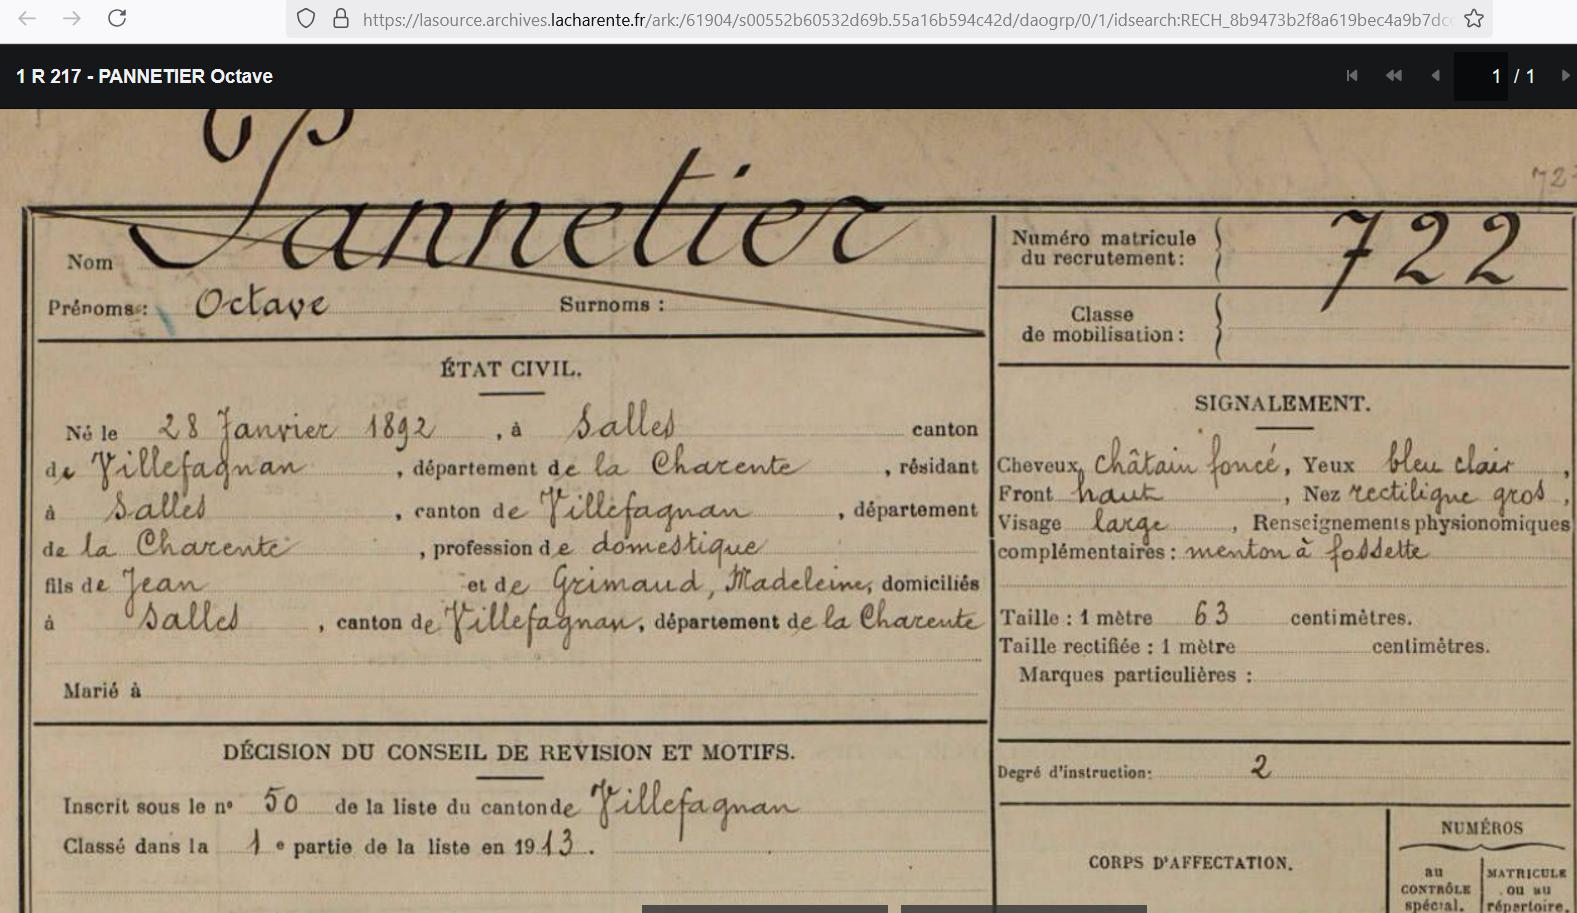 https://lasource.archives.lacharente.fr/ark:/61904/s00552b60532d69b.55a16b594c42d/daogrp/0/1/idsearch:RECH_8b9473b2f8a619bec4a9b7dc
1 R 217 - PANNETIER Octave
1 / 1
72
Nom Pannetier
Prénoms: Octave Surnoms :
Numéro matricule
du recrutement: 722
Classe
de mobilisation:
ÉTAT CIVIL.
Né le 28 Janvier 1892, à Salles canton
de Villefagnan, département de la Charente, résidant
à Salles, canton de Villefagnan, département
de la Charente, profession de domestique
fils de Jean et de Grimaud, Madeleine, domiciliés
à Salles, canton de Villefagnan, département de la Charente
Marié à
SIGNALEMENT.
Cheveux châtain foncé, Yeux bleu clair,
Front haut, Nez rectiligne gros,
Visage large, Renseignements physionomiques
complémentaires : menton à fossette
Taille : 1 mètre 63 centimètres.
Taille rectifiée : 1 mètre centimètres.
Marques particulières :
DÉCISION DU CONSEIL DE REVISION ET MOTIFS.
Inscrit sous le n° 50 de la liste du canton de Villefagnan
Classé dans la 1e partie de la liste en 1913.
Degré d'instruction: 2
CORPS D'AFFECTATION.
NUMÉROS
au
CONTRÔLE
spécial.
MATRICULE
ou au
répertoire.